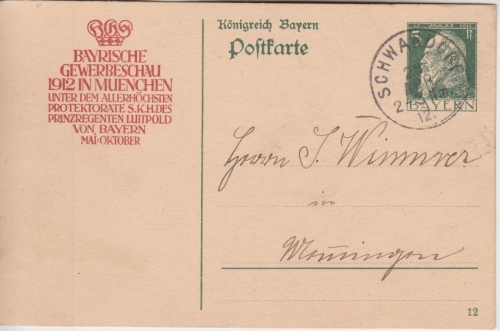 BGS
BAYRISCHE
GEWERBESCHAU
1912 IN MUENCHEN
UNTER DEM ALLERHÖCHSTEN
PROTEKTORATE S.K.H.DES
PRINZREGENTEN LUITPOLD
VON BAYERN
MAI-OKTOBER
Königreich Bayern
Postkarte
5 Pf
BAYERN
SCHWANDORF
12.
Herrn J. Wimmer
in
12